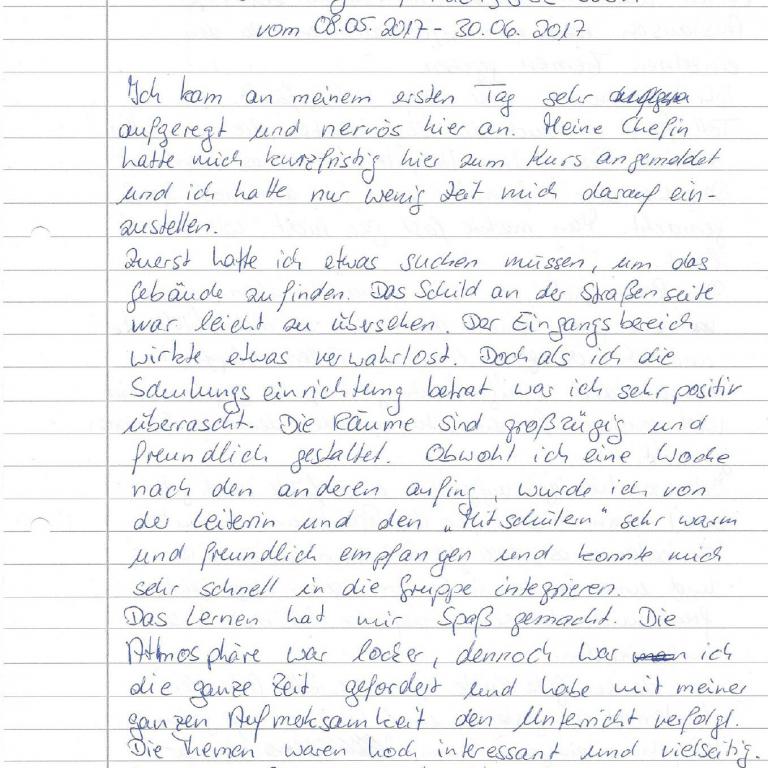 vom 08.05.2017 - 30.06.2017
Ich kam an meinem ersten Tag sehr
aufgeregt und nervös hier an. Meine Chefin
hatte mich kurzfristig hier zum Kurs angemeldet
und ich hatte nur wenig Zeit mich darauf ein-
zustellen.
Zuerst hatte ich etwas suchen müssen, um das
Gebäude zu finden. Das Schild an der Straßenseite
war leicht zu übersehen. Der Eingangsbereich
wirkte etwas verwahrlost. Doch als ich die
Schulungseinrichtung betrat was ich sehr positiv
überrascht. Die Räume sind großzügig und
freundlich gestaltet. Obwohl ich eine Woche
nach den anderen anfing, wurde ich von
der Leiterin und den „Mitschülern" sehr warm
und freundlich empfangen und konnte mich
sehr schnell in die Gruppe integrieren.
Das Lernen hat mir Spaß gemacht. Die
Atmosphäre war locker, dennoch war ich
die ganze Zeit gefordert und habe mit meiner
ganzen Aufmerksamkeit den Unterricht verfolgt.
Die Themen waren hoch interessant und vielseitig.